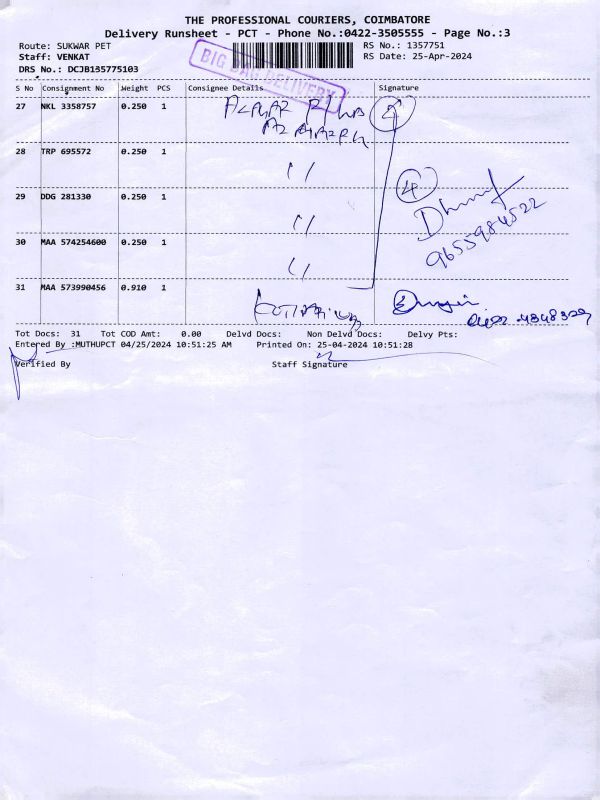 THE PROFESSIONAL COURIERS, COIMBATORE
Delivery Runsheet - PCT - Phone No.:0422-3505555 - Page No.:3
Route: SUKWAR PET
RS No.: 1357751
Staff: VENKAT
RS Date: 25-Apr-2024
DRS No.: DCJB135775103
BIG BAG DELIVERY
S No Consignment No Weight PCS Consignee Details Signature
27 NKL 3358757 0.250 1
28 TRP 695572 0.250 1 "
4
29 DDG 281330 0.250 1 "
9655984522
30 MAA 574254600 0.250 1 "
31 MAA 573990456 0.910 1
Tot Docs: 31 Tot COD Amt: 0.00 Delvd Docs: Non Delvd Docs: Delvy Pts:
Entered By :MUTHUPCT 04/25/2024 10:51:25 AM Printed On: 25-04-2024 10:51:28
Verified By Staff Signature